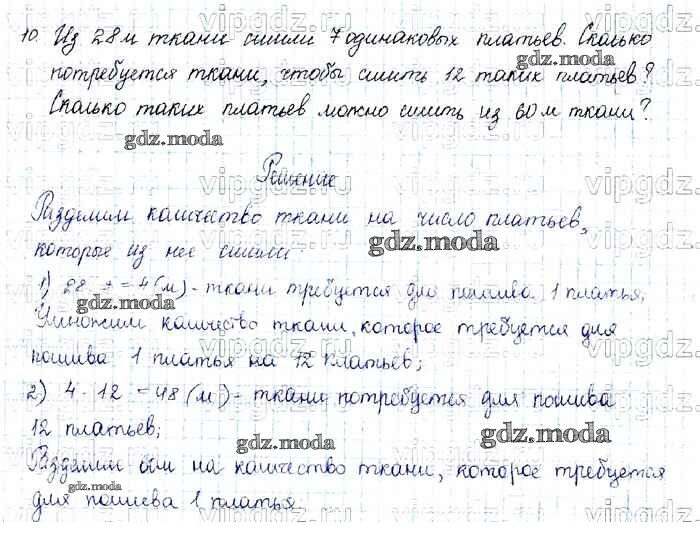 10. Из 28 м ткани сшили 7 одинаковых платьев. Сколько
потребуется ткани, чтобы сшить 12 таких платьев?
Сколько таких платьев можно сшить из 60 м ткани?
Решение
Разделим количество ткани на число платьев,
которые из нее сшили
1) 28 : 7 = 4 (м) - ткани требуется для пошива 1 платья;
Умножим количество ткани, которое требуется для
пошива 1 платья на 12 платьев;
2) 4 · 12 = 48 (м) - ткани потребуется для пошива
12 платьев;
Разделим 60м на количество ткани, которое требуется
для пошива 1 платья